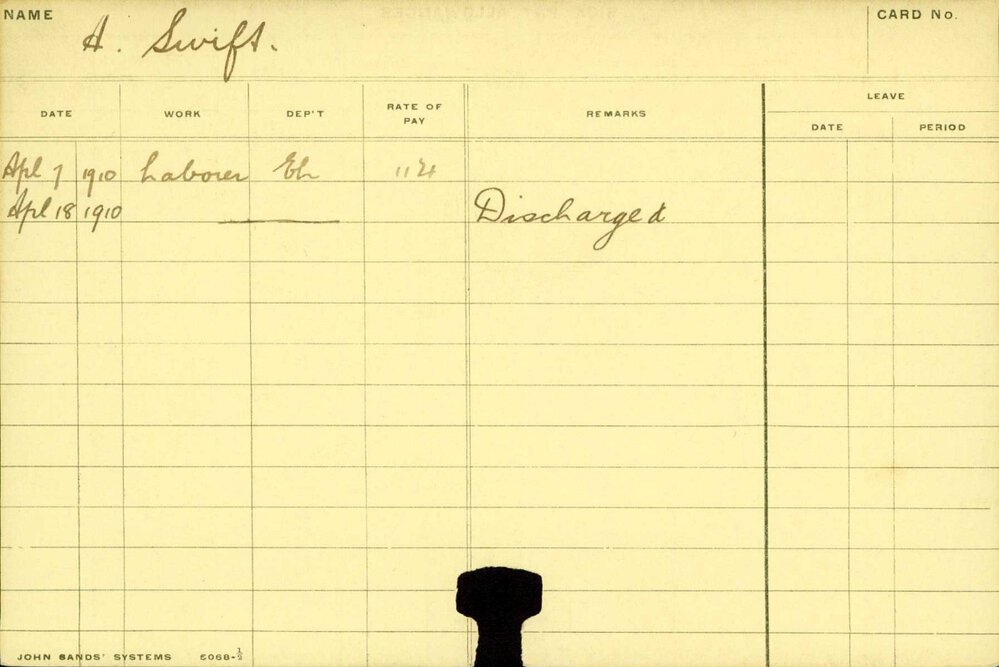 NAME A. Swift. CARD No.
DATE WORK DEP'T RATE OF PAY REMARKS LEAVE
DATE PERIOD
Apl 7 1910 Laborer Eh
Apl 18 1910 Discharged
JOHN SANDS' SYSTEMS 5068-½